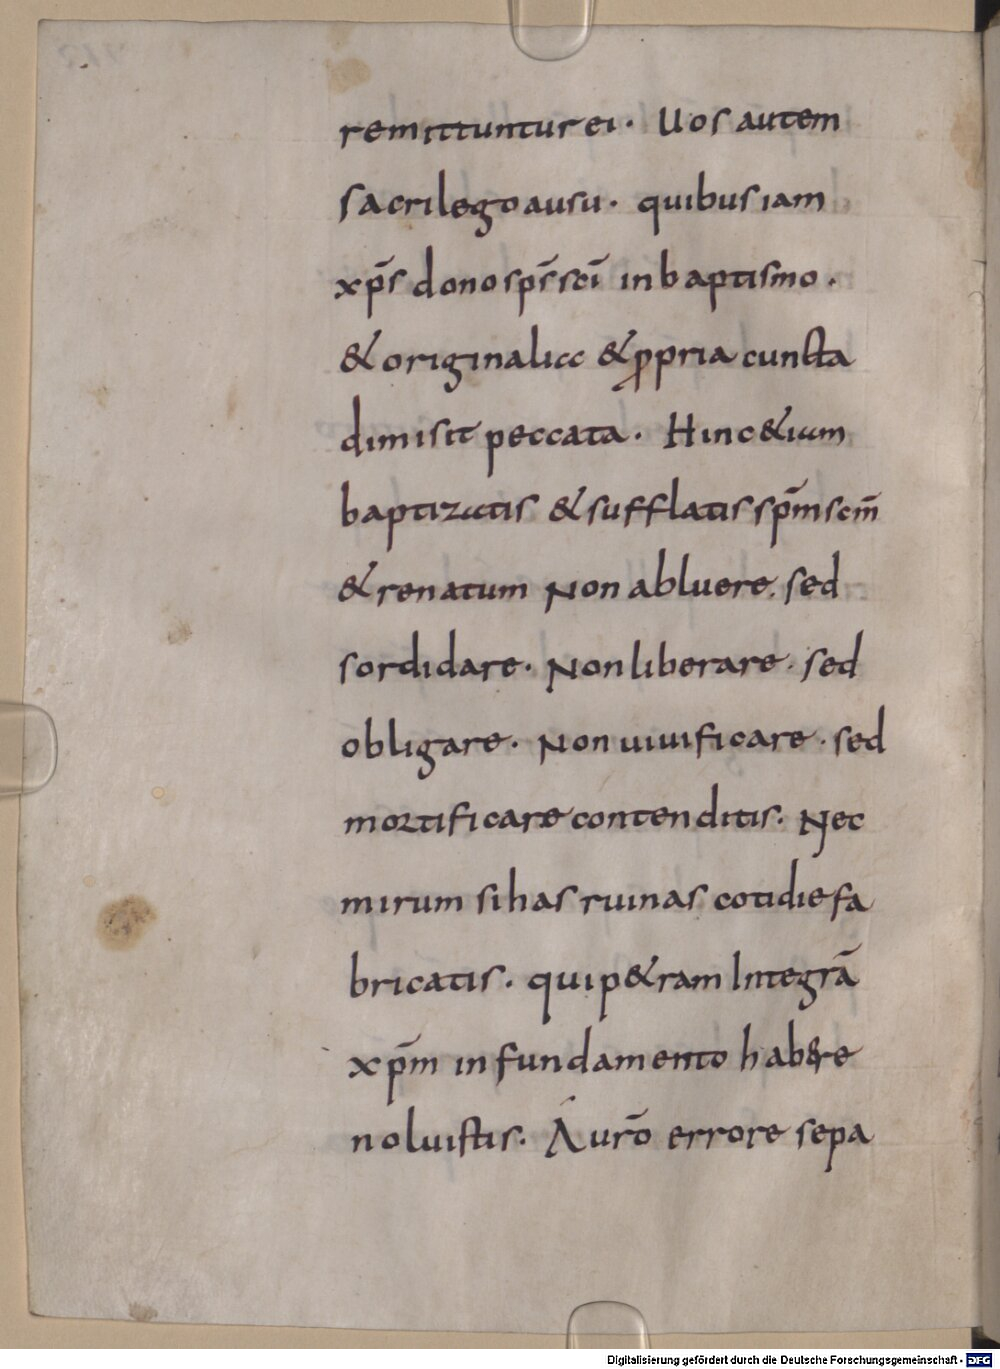 remittuntur ei · Uos autem
sacrilego ausu · quibus iam
xp̄s dono sp̄s sc̄i in baptismo ·
& originalia & ꝓpria cuncta
dimisit peccata · Hinc & iam
baptizatis & sufflatis sp̄m scm̄
& renatum Non abluere . sed
sordidare · Non liberare · sed
obligare · Non uiuificare · sed
mortificare contenditis · Nec
mirum si has ruinas cotidie fa
bricatis · qui p&ram Integrā
xp̄m in fundamento habere
noluistis · A urō errore sepa
Digitalisierung gefördert durch die Deutsche Forschungsgemeinschaft - DFG